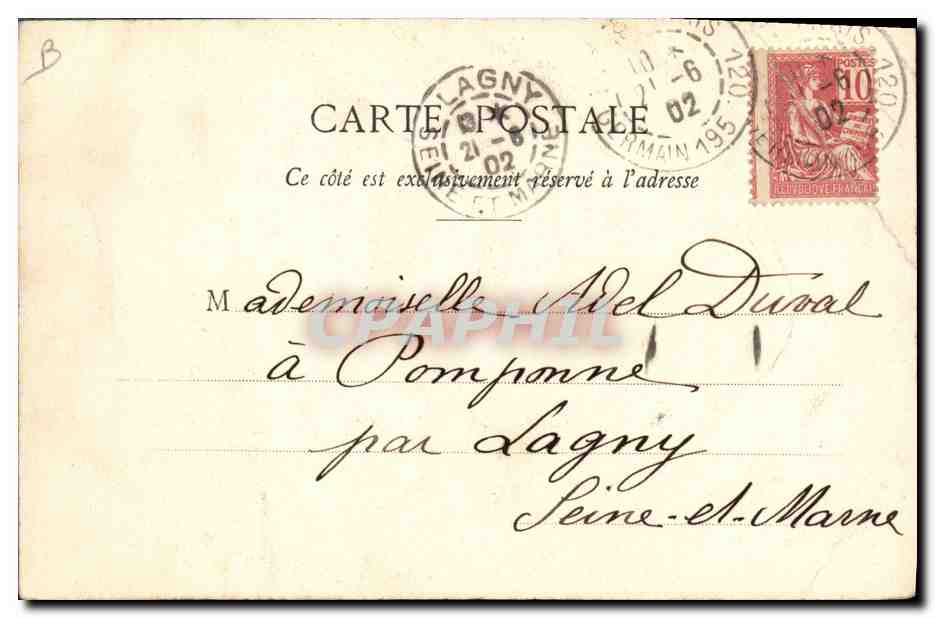 B
CARTE POSTALE
Ce côté est exclusivement réservé à l'adresse
LAGNY
21 - 6
02
SEINE ET MARNE
-6
02
GERMAIN 195
120
POSTES
10
REPUBLIQUE FRANCAISE
-6
02
120
Mademoiselle Adel Duval
CPAPHIL
à Pomponne
par Lagny
Seine-et-Marne